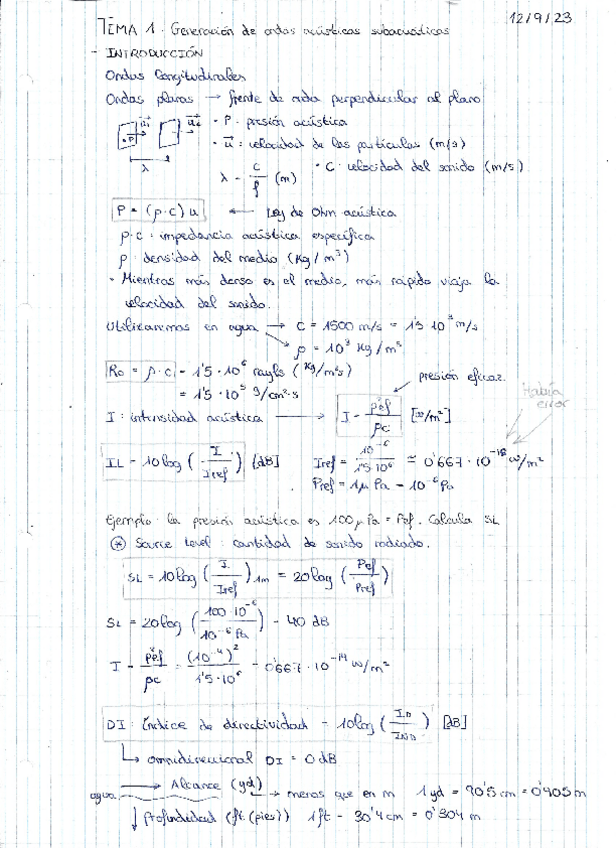 12/9/23
TEMA 1. Generación de ondas acústicas subacuáticas
- INTRODUCCIÓN
Ondas longitudinales
Ondas planas → frente de onda perpendicular al plano
• P: presión acústica
• u⃗: velocidad de las partículas (m/s)
λ
λ = c/f (m)
• C: velocidad del sonido (m/s)
P = (ρ·c) u ← Ley de Ohm acústica
ρ·c: impedancia acústica específica
ρ: densidad del medio (Kg/m³)
• Mientras más denso es el medio, más rápido viaja la
velocidad del sonido.
Utilizaremos en agua → C = 1500 m/s = 1'5·10³ m/s
ρ = 10³ Kg/m³
Ro = ρ·c = 1'5·10⁶ rayls (Kg/m²s)
= 1'5·10⁵ g/cm²·s
presión eficaz.
Había error
I: intensidad acústica → I = p²ef/ρc [w/m²]
IL = 10log (I/Iref) [dB]
Iref = 10⁻⁶/1'5·10⁶ ≈ 0'667·10⁻¹⁸ w/m²
Pref = 1μPa = 10⁻⁶Pa
Ejemplo: la presión acústica es 100μPa = Pef. Calcula SL
⊛ Source Level: cantidad de sonido radiado.
SL = 10log (I/Iref)₁ₘ = 20log (Pef/Pref)
SL = 20log (100·10⁻⁶/10⁻⁶Pa) = 40 dB
I = p²ef/ρc = (10⁻⁴)²/1'5·10⁶ = 0'667·10⁻¹⁴ w/m²
DI: Índice de directividad = 10log (I_D/I_ND) [dB]
↳ omnidireccional DI = 0dB
→ Alcance (yd) → menos que en m 1yd = 90'5cm = 0'905m
agua
↓ Profundidad (ft (pies)) 1ft = 30'4cm = 0'304m